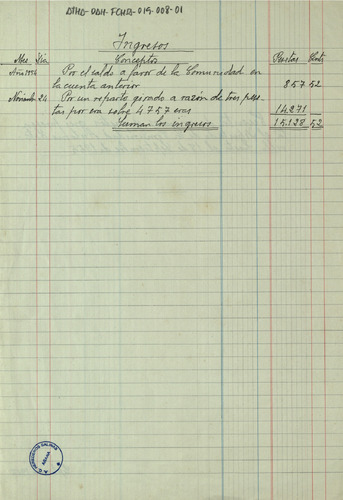 ATHA-DAH-FCHA-015-008-01
Ingresos
Mes Día Conceptos Pesetas Cts
Año 1926 Por el saldo a favor de la Comunidad en
la cuenta anterior 857 52
Noviembre 24 Por un reparto girado a razón de tres pese-
tas por era sobre 4757 eras 14271
Suman los ingresos 15.128 52